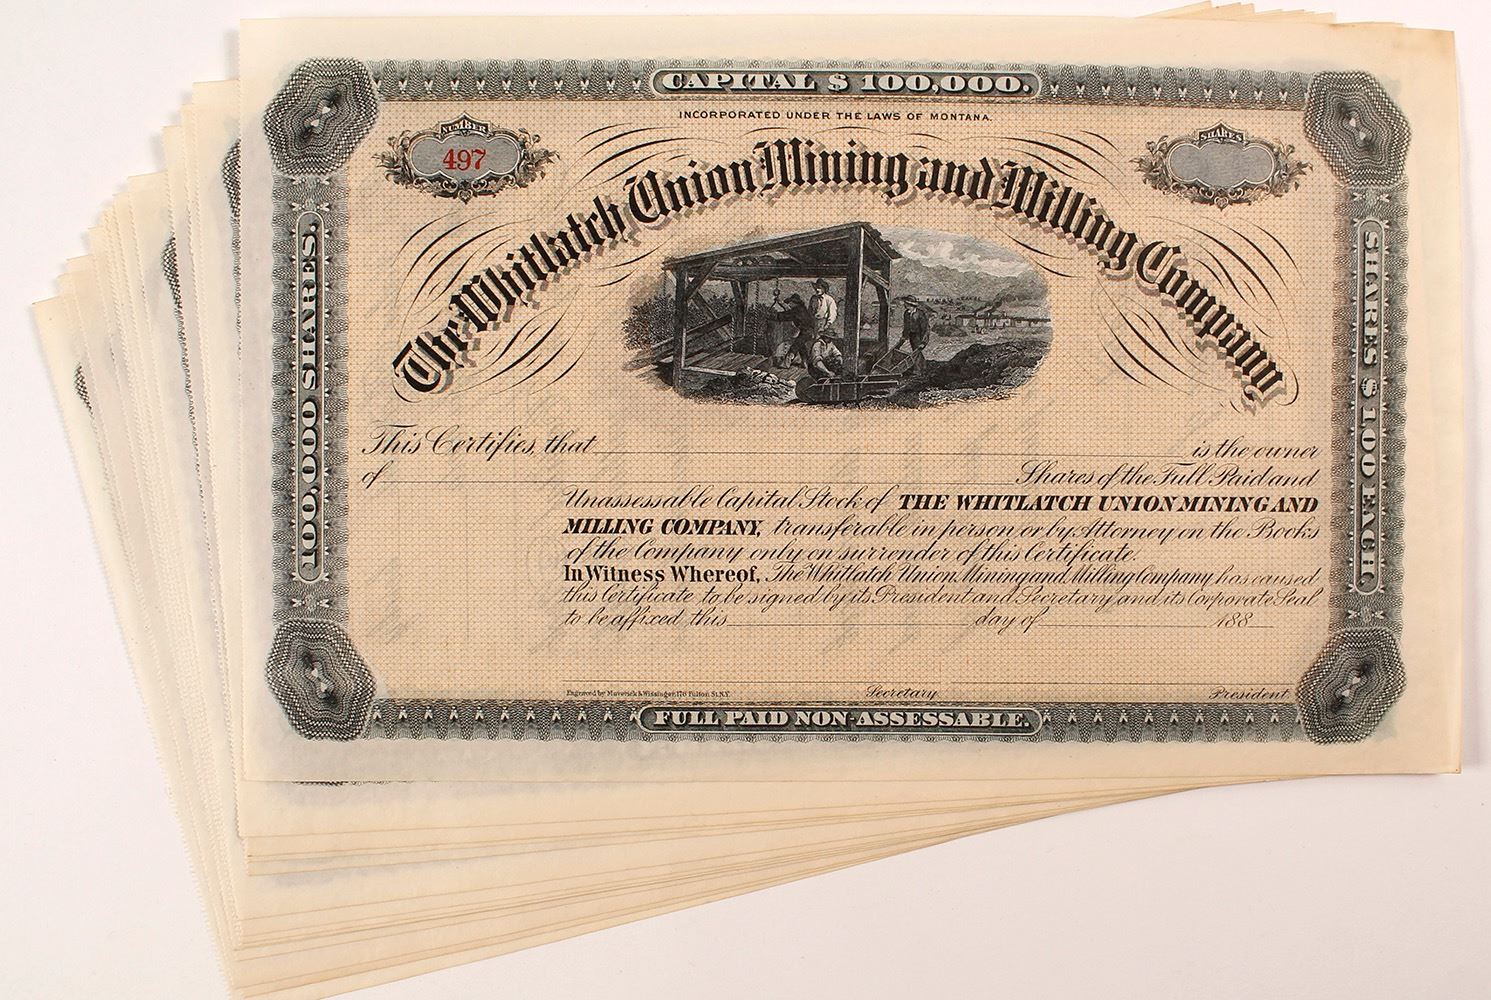 CAPITAL $ 100,000.
INCORPORATED UNDER THE LAWS OF MONTANA.
NUMBER
497
SHARES
The Whitlatch Union Mining and Milling Company
100,000 SHARES.
SHARES $1.00 EACH.
This Certifies, that is the owner
of Shares of the Full Paid and
Unassessable Capital Stock of THE WHITLATCH UNION MINING AND
MILLING COMPANY, transferable in person or by Attorney on the Books
of the Company only on surrender of this Certificate.
In Witness Whereof, The Whitlatch Union Mining and Milling Company has caused
this Certificate to be signed by its President and Secretary and its Corporate Seal
to be affixed this day of 188
Engraved by Maverick & Wissinger, 176 Fulton St. N.Y.
Secretary
President
FULL PAID NON-ASSESSABLE.